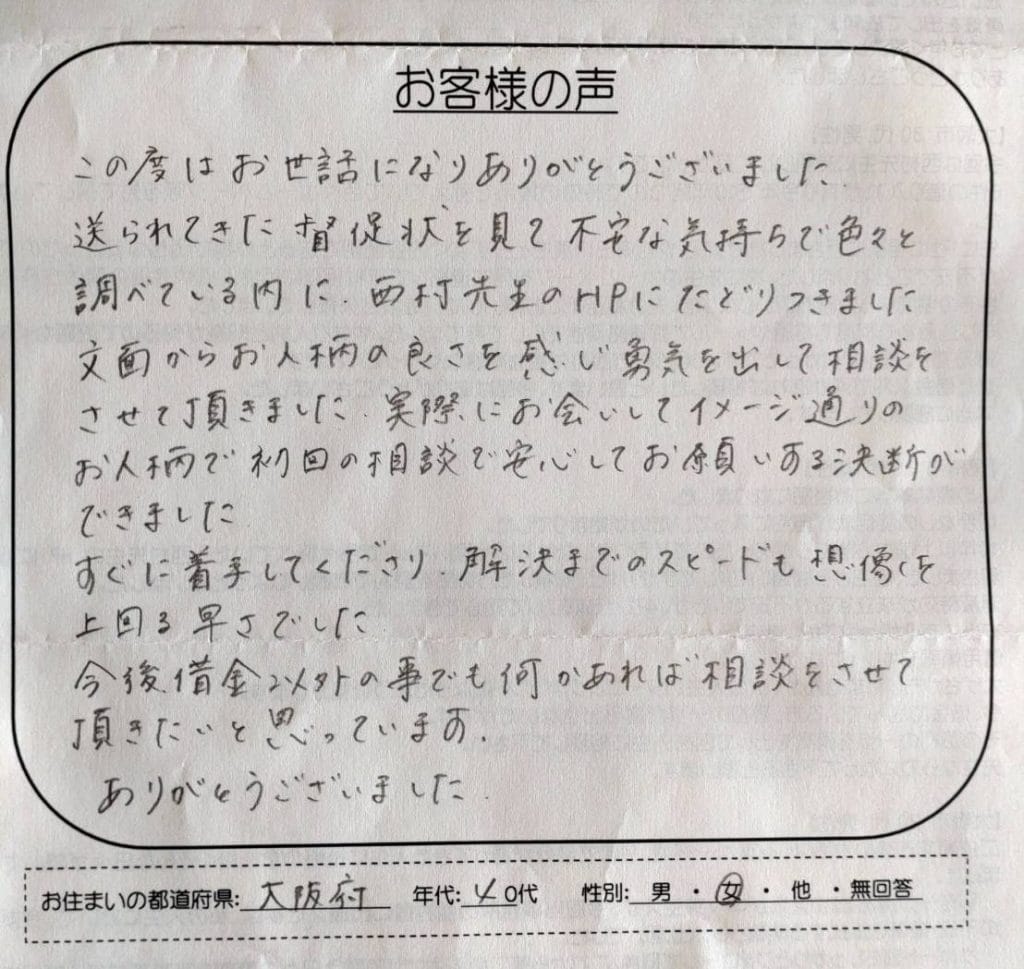 お客様の声
この度はお世話になりありがとうございました
送られてきた督促状を見て不安な気持ちで色々と
調べている内に、西村先生のHPにたどりつきました
文面からお人柄の良さを感じ勇気を出して相談を
させて頂きました、実際にお会いしてイメージ通りの
お人柄で初回の相談で安心してお願いする決断が
できました
すぐに着手してくださり、解決までのスピードも想像を
上回る早さでした
今後借金以外の事でも何かあれば相談をさせて
頂きたいと思っています、
ありがとうございました、
お住まいの都道府県: 大阪府 年代: 40代 性別: 男・女・他・無回答